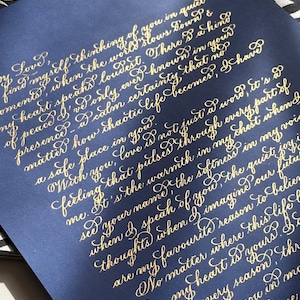 My Love,
find myself thinking of you in quiet
moments, when the world slows down &
my heart speaks loudest. There is a kind
of peace I've only ever known in your
presence - a calm certainty that no
matter how chaotic life becomes, I have
a safe place in you.
With you, love is not just a word it's a
feeling that pulses through every part of
me. It's the warmth in my chest when
see your name, the softness in my
when I speak of you, the quiet joy
thoughts when I imagine our future
are my favourite reason to believe
No matter where this life
my heart is yours. I
every season, th
you in